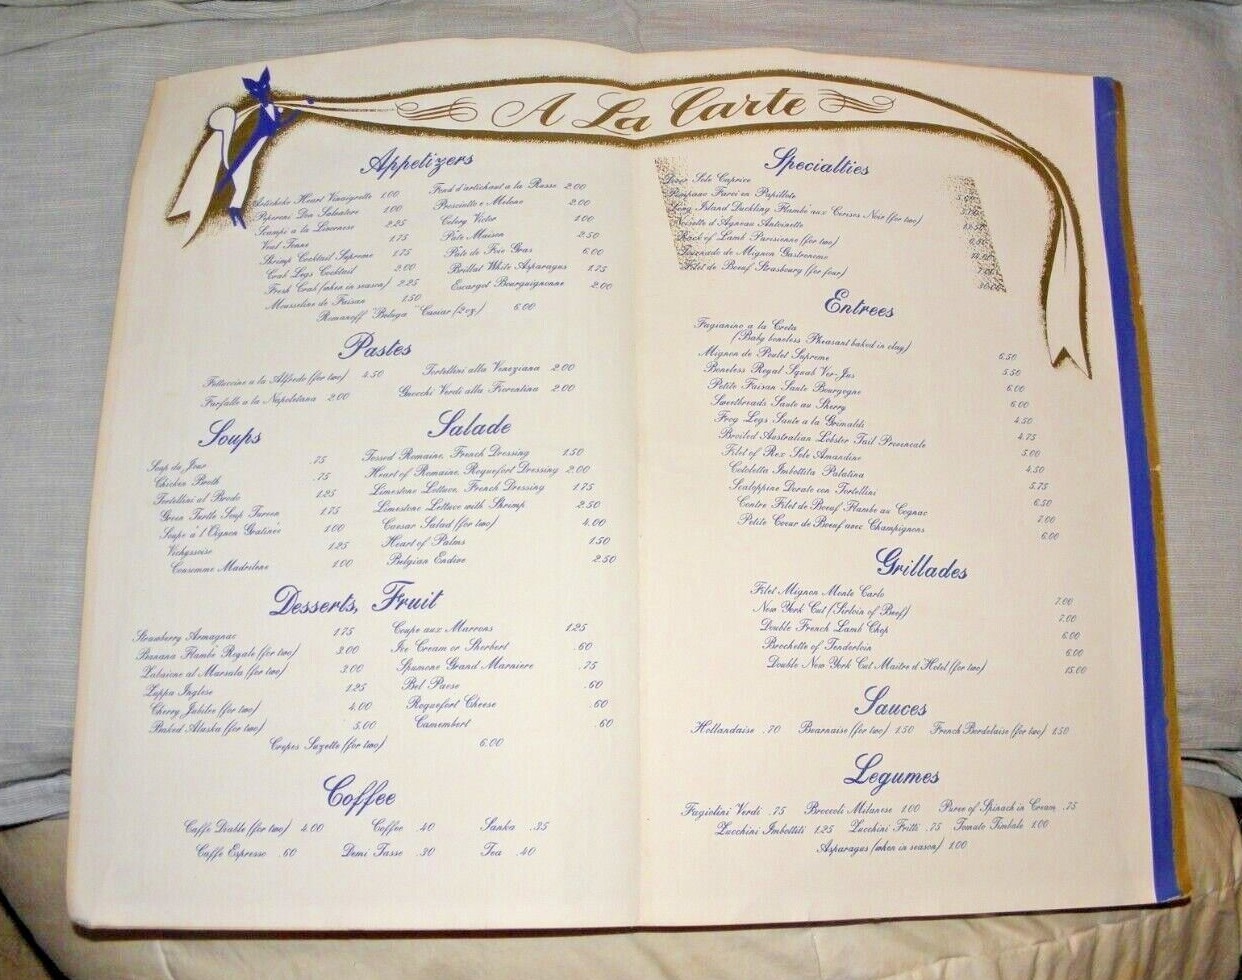 A La Carte
Appetizers
Artichoke Heart Vinaigrette 1.00
Peperoni Don Salvatore 1.00
Scampi a la Livornese 2.25
Veal Tonne 1.75
Shrimp Cocktail Supreme 1.75
Crab Legs Cocktail 2.00
Fresh Crab (when in season) 2.25
Mousseline de Faisan 1.50
Fond d'artichaut a la Russe 2.00
Prosciutto e Melone 2.00
Celery Victor 1.00
Pate Maison 2.50
Pate de Foie Gras 6.00
Brillat White Asparagus 1.75
Escargot Bourguignonne 2.00
Romanoff "Beluga" Caviar (2 oz.) 6.00
Pastes
Fettuccine a la Alfredo (for two) 4.50
Farfalle a la Napoletana 2.00
Tortellini alla Veneziana 2.00
Gnocchi Verdi alla Fiorentina 2.00
Soups
Soup du Jour .75
Chicken Broth .75
Tortellini al Brodo 1.25
Green Turtle Soup Tureen 1.75
Soupe à l'Oignon Gratinée 1.00
Vichyssoise 1.25
Consomme Madrilene 1.00
Salade
Tossed Romaine, French Dressing 1.50
Heart of Romaine, Roquefort Dressing 2.00
Limestone Lettuce, French Dressing 1.75
Limestone Lettuce with Shrimp 2.50
Caesar Salad (for two) 4.00
Heart of Palms 1.50
Belgian Endive 2.50
Desserts, Fruit
Strawberry Armagnac 1.75
Banana Flambé Royale (for two) 3.00
Zabaione al Marsala (for two) 3.00
Zuppa Inglese 1.25
Cherry Jubilee (for two) 4.00
Baked Alaska (for two) 5.00
Coupe aux Marrons 1.25
Ice Cream or Sherbert .60
Spumone Grand Marniere .75
Bel Paese .60
Roquefort Cheese .60
Camembert .60
Crepes Suzette (for two) 6.00
Coffee
Caffe Diable (for two) 4.00 Coffee .40 Sanka .35
Caffe Espresso .60 Demi Tasse .30 Tea .40
Specialties
Sole Caprice
Pompano Farci en Papillote
Long Island Duckling Flambé aux Cerises Noir (for two)
Noisette d'Agneau Antoinette
Rack of Lamb Parisienne (for two)
Tournedo de Mignon Gastronome
Filet de Boeuf Strasbourg (for four)
Entrees
Fagianino a la Creta
(Baby boneless Pheasant baked in clay) 6.50
Mignon de Poulet Supreme 5.50
Boneless Royal Squab Ver-Jus 6.00
Petite Faisan Saute Bourgogne 6.00
Sweetbreads Saute au Sherry 4.50
Frog Legs Saute a la Grimaldi 4.75
Broiled Australian Lobster Tail Provencale 5.00
Filet of Rex Sole Amandine 4.50
Cotoletta Imbottita Palatina 5.75
Scaloppine Dorate con Tortellini 6.50
Contre Filet de Boeuf Flambe au Cognac 7.00
Petite Coeur de Boeuf avec Champignons 6.00
Grillades
Filet Mignon Monte Carlo 7.00
New York Cut (Sirloin of Beef) 7.00
Double French Lamb Chop 6.00
Brochette of Tenderloin 6.00
Double New York Cut Maitre d'Hotel (for two) 15.00
Sauces
Hollandaise .70 Bearnaise (for two) 1.50 French Bordelaise (for two) 1.50
Legumes
Fagiolini Verdi .75 Broccoli Milanese 1.00 Puree of Spinach in Cream .75
Zucchini Imbottiti 1.25 Zucchini Fritti .75 Tomato Timbale 1.00
Asparagus (when in season) 1.00